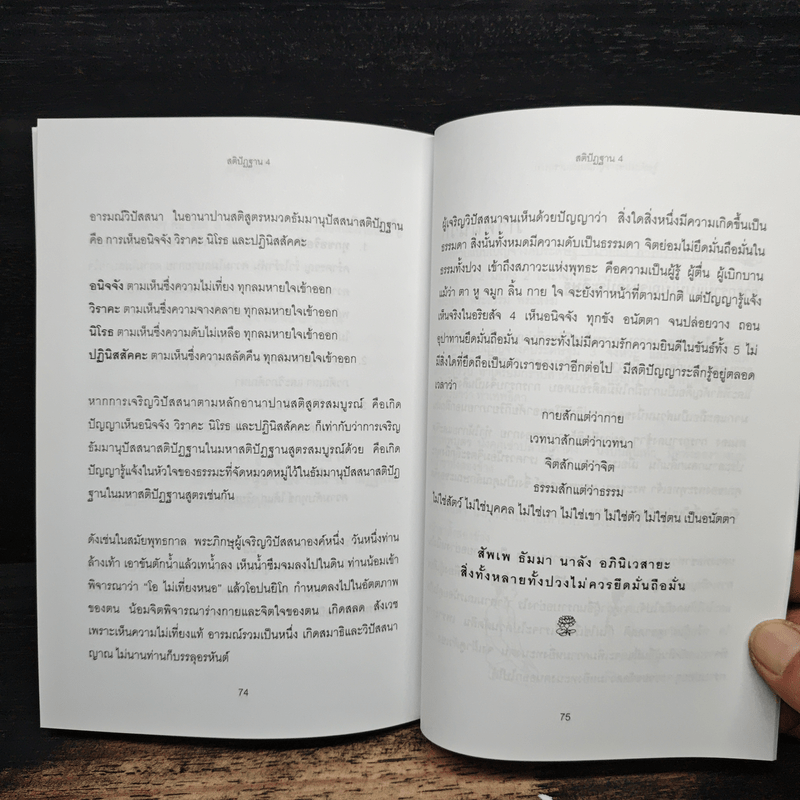 สติปัฏฐาน 4
อารมณ์วิปัสสนา ในอานาปานสติสูตรหมวดธัมมานุปัสสนาสติปัฏฐาน
คือ การเห็นอนิจจัง วิราคะ นิโรธ และปฏินิสสัคคะ
อนิจจัง ตามเห็นซึ่งความไม่เที่ยง ทุกลมหายใจเข้าออก
วิราคะ ตามเห็นซึ่งความจางคลาย ทุกลมหายใจเข้าออก
นิโรธ ตามเห็นซึ่งความดับไม่เหลือ ทุกลมหายใจเข้าออก
ปฏินิสสัคคะ ตามเห็นซึ่งความสลัดคืน ทุกลมหายใจเข้าออก
หากการเจริญวิปัสสนาตามหลักอานาปานสติสูตรสมบูรณ์ คือเกิด
ปัญญาเห็นอนิจจัง วิราคะ นิโรธ และปฏินิสสัคคะ ก็เท่ากับว่าการเจริญ
ธัมมานุปัสสนาสติปัฏฐานในมหาสติปัฏฐานสูตรสมบูรณ์ด้วย คือเกิด
ปัญญารู้แจ้งในหัวใจของธรรมะที่จัดหมวดหมู่ไว้ในธัมมานุปัสสนาสติปัฏ
ฐานในมหาสติปัฏฐานสูตรเช่นกัน
ดังเช่นในสมัยพุทธกาล พระภิกษุผู้เจริญวิปัสสนาองค์หนึ่ง วันหนึ่งท่าน
ล้างเท้า เอาขันตักน้ำแล้วเทน้ำลง เห็นน้ำซึมจมลงไปในดิน ท่านน้อมเข้า
พิจารณาว่า “โอ ไม่เที่ยงหนอ” แล้วโอปนยิโก กำหนดลงไปในอัตตภาพ
ของตน น้อมจิตพิจารณาร่างกายและจิตใจของตน เกิดสลด สังเวช
เพราะเห็นความไม่เที่ยงแท้ อารมณ์รวมเป็นหนึ่ง เกิดสมาธิและวิปัสสนา
ญาณ ไม่นานท่านก็บรรลุอรหันต์
74
สติปัฏฐาน 4
ผู้เจริญวิปัสสนาจนเห็นด้วยปัญญาว่า สิ่งใดสิ่งหนึ่งมีความเกิดขึ้นเป็น
ธรรมดา สิ่งนั้นทั้งหมดมีความดับเป็นธรรมดา จิตย่อมไม่ยึดมั่นถือมั่นใน
ธรรมทั้งปวง เข้าถึงสภาวะแห่งพุทธะ คือความเป็นผู้รู้ ผู้ตื่น ผู้เบิกบาน
แม้ว่า ตา หู จมูก ลิ้น กาย ใจ จะยังทำหน้าที่ตามปกติ แต่ปัญญารู้แจ้ง
เห็นจริงในอริยสัจ 4 เห็นอนิจจัง ทุกขัง อนัตตา จนปล่อยวาง ถอน
อุปาทานยึดมั่นถือมั่น จนกระทั่งไม่มีความรักความยินดีในขันธ์ทั้ง 5 ไม่
มีสิ่งใดที่ยึดถือเป็นตัวเราของเราอีกต่อไป มีสติปัญญาระลึกรู้อยู่ตลอด
เวลาว่า
กายสักแต่ว่ากาย
เวทนาสักแต่ว่าเวทนา
จิตสักแต่ว่าจิต
ธรรมสักแต่ว่าธรรม
ไม่ใช่สัตว์ ไม่ใช่บุคคล ไม่ใช่เรา ไม่ใช่เขา ไม่ใช่ตัว ไม่ใช่ตน เป็นอนัตตา
สัพเพ ธัมมา นาลัง อภินิเวสายะ
สิ่งทั้งหลายทั้งปวงไม่ควรยึดมั่นถือมั่น
75